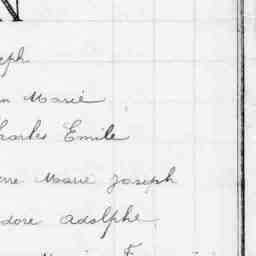 N
eph
n Marie
harles Emile
rre Marie Joseph
dore Adolphe